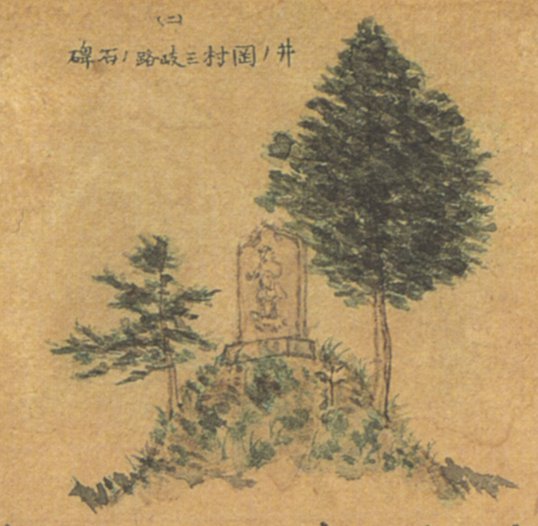 (二)
井ノ岡村三岐路ノ石碑